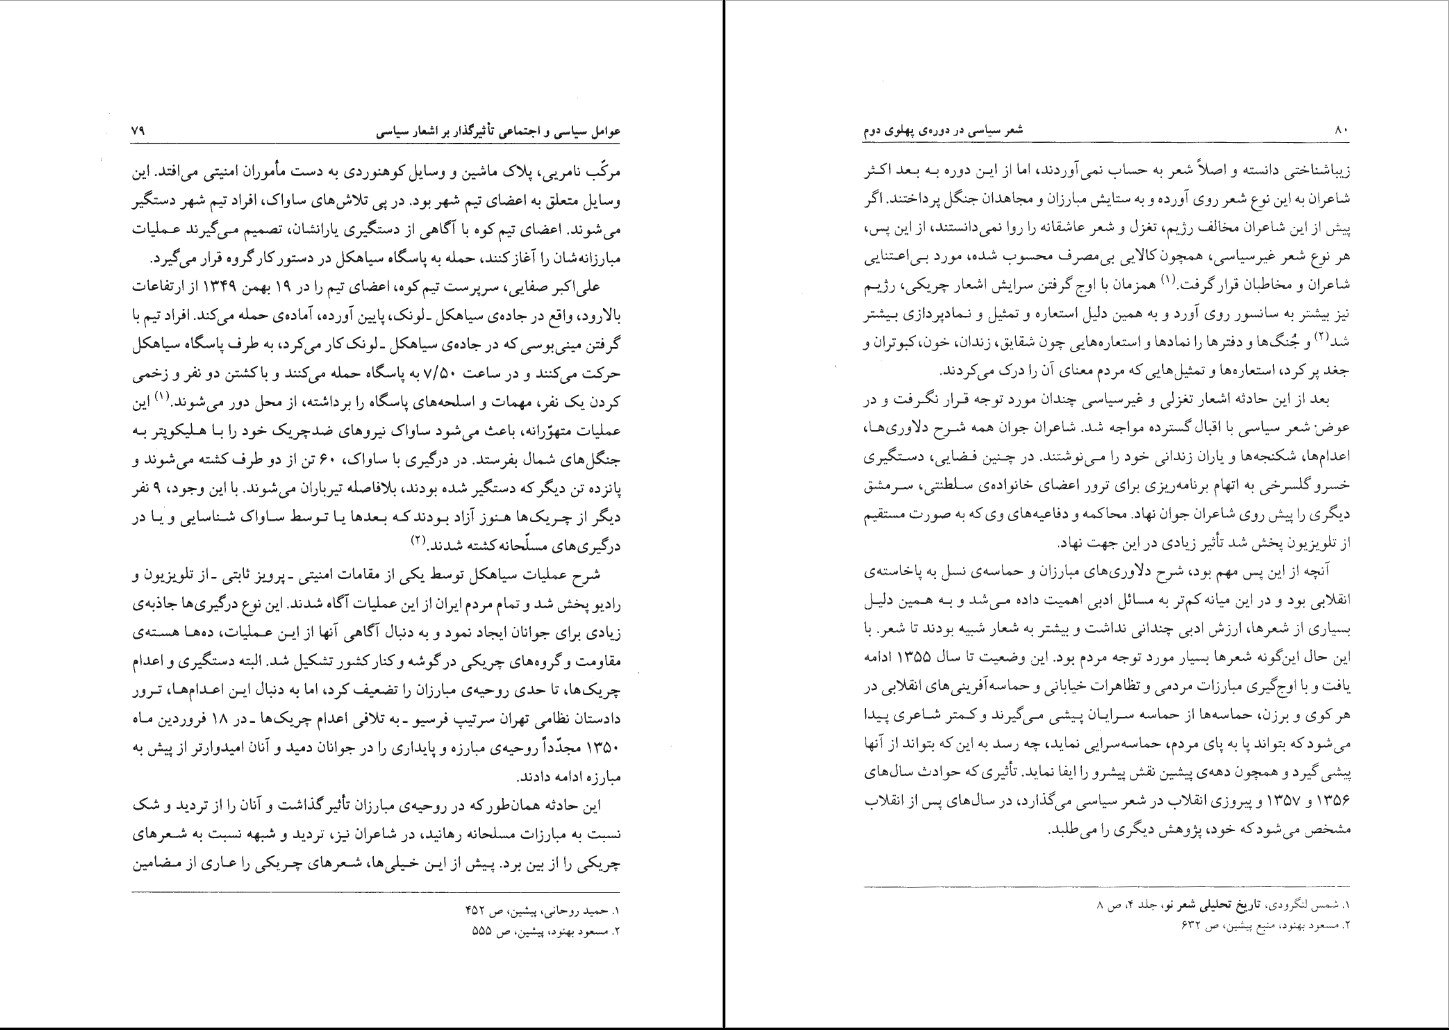 عوامل سیاسی و اجتماعی تأثیرگذار بر اشعار سیاسی ۷۹
مرکّب نامریی، پلاک ماشین و وسایل کوهنوردی به دست مأموران امنیتی می‌افتد. این
وسایل متعلق به اعضای تیم شهر بود. در پی تلاش‌های ساواک، افراد تیم شهر دستگیر
می‌شوند. اعضای تیم کوه با آگاهی از دستگیری یارانشان، تصمیم می‌گیرند عملیات
مبارزانه‌شان را آغاز کنند، حمله به پاسگاه سیاهکل در دستور کار گروه قرار می‌گیرد.
علی‌اکبر صفایی، سرپرست تیم کوه، اعضای تیم را در ۱۹ بهمن ۱۳۴۹ از ارتفاعات
بالارود، واقع در جاده‌ی سیاهکل ـ لونک، پایین آورده، آماده‌ی حمله می‌کند. افراد تیم با
گرفتن مینی‌بوسی که در جاده‌ی سیاهکل ـ لونک کار می‌کرد، به طرف پاسگاه سیاهکل
حرکت می‌کنند و در ساعت ۷/۵۰ به پاسگاه حمله می‌کنند و با کشتن دو نفر و زخمی
کردن یک نفر، مهمات و اسلحه‌های پاسگاه را برداشته، از محل دور می‌شوند.(۱) این
عملیات متهوّرانه، باعث می‌شود ساواک نیروهای ضدچریک خود را با هلیکوپتر به
جنگل‌های شمال بفرستد. در درگیری با ساواک، ۶۰ تن از دو طرف کشته می‌شوند و
پانزده تن دیگر که دستگیر شده بودند، بلافاصله تیرباران می‌شوند. با این وجود، ۹ نفر
دیگر از چریک‌ها هنوز آزاد بودند که بعدها یا توسط ساواک شناسایی و یا در
درگیری‌های مسلّحانه کشته شدند.(۲)
شرح عملیات سیاهکل توسط یکی از مقامات امنیتی ـ پرویز ثابتی ـ از تلویزیون و
رادیو پخش شد و تمام مردم ایران از این عملیات آگاه شدند. این نوع درگیری‌ها جاذبه‌ی
زیادی برای جوانان ایجاد نمود و به دنبال آگاهی آنها از این عملیات، ده‌ها هسته‌ی
مقاومت و گروه‌های چریکی در گوشه و کنار کشور تشکیل شد. البته دستگیری و اعدام
چریک‌ها، تا حدی روحیه‌ی مبارزان را تضعیف کرد، اما به دنبال این اعدام‌ها، ترور
دادستان نظامی تهران سرتیپ فرسیو ـ به تلافی اعدام چریک‌ها ـ در ۱۸ فروردین ماه
۱۳۵۰ مجدّداً روحیه‌ی مبارزه و پایداری را در جوانان دمید و آنان امیدوارتر از پیش به
مبارزه ادامه دادند.
این حادثه همان‌طور که در روحیه‌ی مبارزان تأثیر گذاشت و آنان را از تردید و شک
نسبت به مبارزات مسلحانه رهانید، در شاعران نیز، تردید و شبهه نسبت به شعرهای
چریکی را از بین برد. پیش از این خیلی‌ها، شعرهای چریکی را عاری از مضامین
۱. حمید روحانی، پیشین، ص ۴۵۲
۲. مسعود بهنود، پیشین، ص ۵۵۵
۸۰ شعر سیاسی در دوره‌ی پهلوی دوم
زیباشناختی دانسته و اصلاً شعر به حساب نمی‌آوردند، اما از این دوره به بعد اکثر
شاعران به این نوع شعر روی آورده و به ستایش مبارزان و مجاهدان جنگل پرداختند. اگر
پیش از این شاعران مخالف رژیم، تغزل و شعر عاشقانه را روا نمی‌دانستند، از این پس،
هر نوع شعر غیرسیاسی، همچون کالایی بی‌مصرف محسوب شده، مورد بی‌اعتنایی
شاعران و مخاطبان قرار گرفت.(۱) همزمان با اوج گرفتن سرایش اشعار چریکی، رژیم
نیز بیشتر به سانسور روی آورد و به همین دلیل استعاره و تمثیل و نمادپردازی بیشتر
شد(۲) و جُنگ‌ها و دفترها را نمادها و استعاره‌هایی چون شقایق، زندان، خون، کبوتران و
جغد پر کرد، استعاره‌ها و تمثیل‌هایی که مردم معنای آن را درک می‌کردند.
بعد از این حادثه اشعار تغزلی و غیرسیاسی چندان مورد توجه قرار نگرفت و در
عوض شعر سیاسی با اقبال گسترده مواجه شد. شاعران جوان همه شرح دلاوری‌ها،
اعدام‌ها، شکنجه‌ها و یاران زندانی خود را می‌نوشتند. در چنین فضایی، دستگیری
خسرو گلسرخی به اتهام برنامه‌ریزی برای ترور اعضای خانواده‌ی سلطنتی، سرمشق
دیگری را پیش روی شاعران جوان نهاد. محاکمه و دفاعیه‌های وی که به صورت مستقیم
از تلویزیون پخش شد تأثیر زیادی در این جهت نهاد.
آنچه از این پس مهم بود، شرح دلاوری‌های مبارزان و حماسه‌ی نسل به پاخاسته‌ی
انقلابی بود و در این میانه کم‌تر به مسائل ادبی اهمیت داده می‌شد و به همین دلیل
بسیاری از شعرها، ارزش ادبی چندانی نداشت و بیشتر به شعار شبیه بودند تا شعر. با
این حال این‌گونه شعرها بسیار مورد توجه مردم بود. این وضعیت تا سال ۱۳۵۵ ادامه
یافت و با اوج‌گیری مبارزات مردمی و تظاهرات خیابانی و حماسه‌آفرینی‌های انقلابی در
هر کوی و برزن، حماسه‌ها از حماسه سرایان پیشی می‌گیرند و کمتر شاعری پیدا
می‌شود که بتواند پا به پای مردم، حماسه‌سرایی نماید، چه رسد به این که بتواند از آنها
پیشی گیرد و همچون دهه‌ی پیشین نقش پیشرو را ایفا نماید. تأثیری که حوادث سال‌های
۱۳۵۶ و ۱۳۵۷ و پیروزی انقلاب در شعر سیاسی می‌گذارد، در سال‌های پس از انقلاب
مشخص می‌شود که خود، پژوهش دیگری را می‌طلبد.
۱. شمس لنگرودی، تاریخ تحلیلی شعر نو، جلد ۴، ص ۸
۲. مسعود بهنود، منبع پیشین، ص ۶۳۲